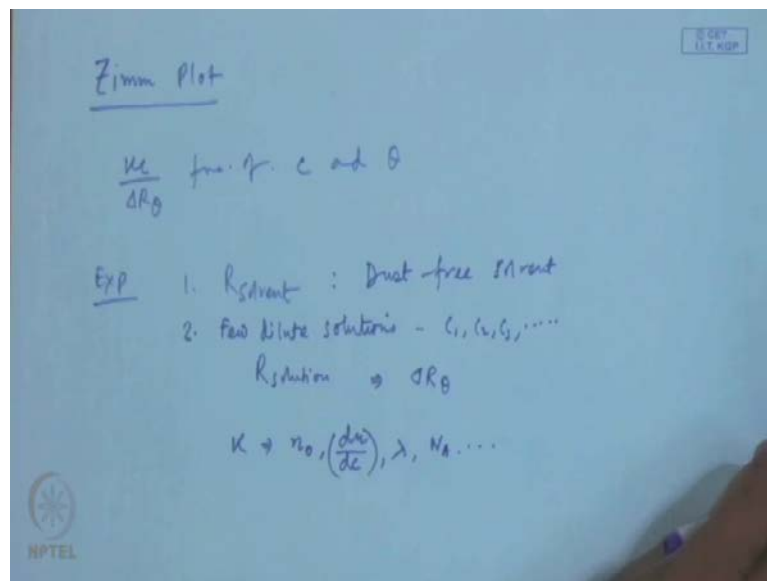 © CET
I.I.T. KGP
Zimm Plot
Kc/ΔRθ func. of. c and θ
Exp 1. Rsolvent : Dust-free solvent
2. Few dilute solutions - C1, C2, C3, .....
Rsolution ⇒ ΔRθ
K ⇒ n0, (dn/dc), λ, NA ....
NPTEL